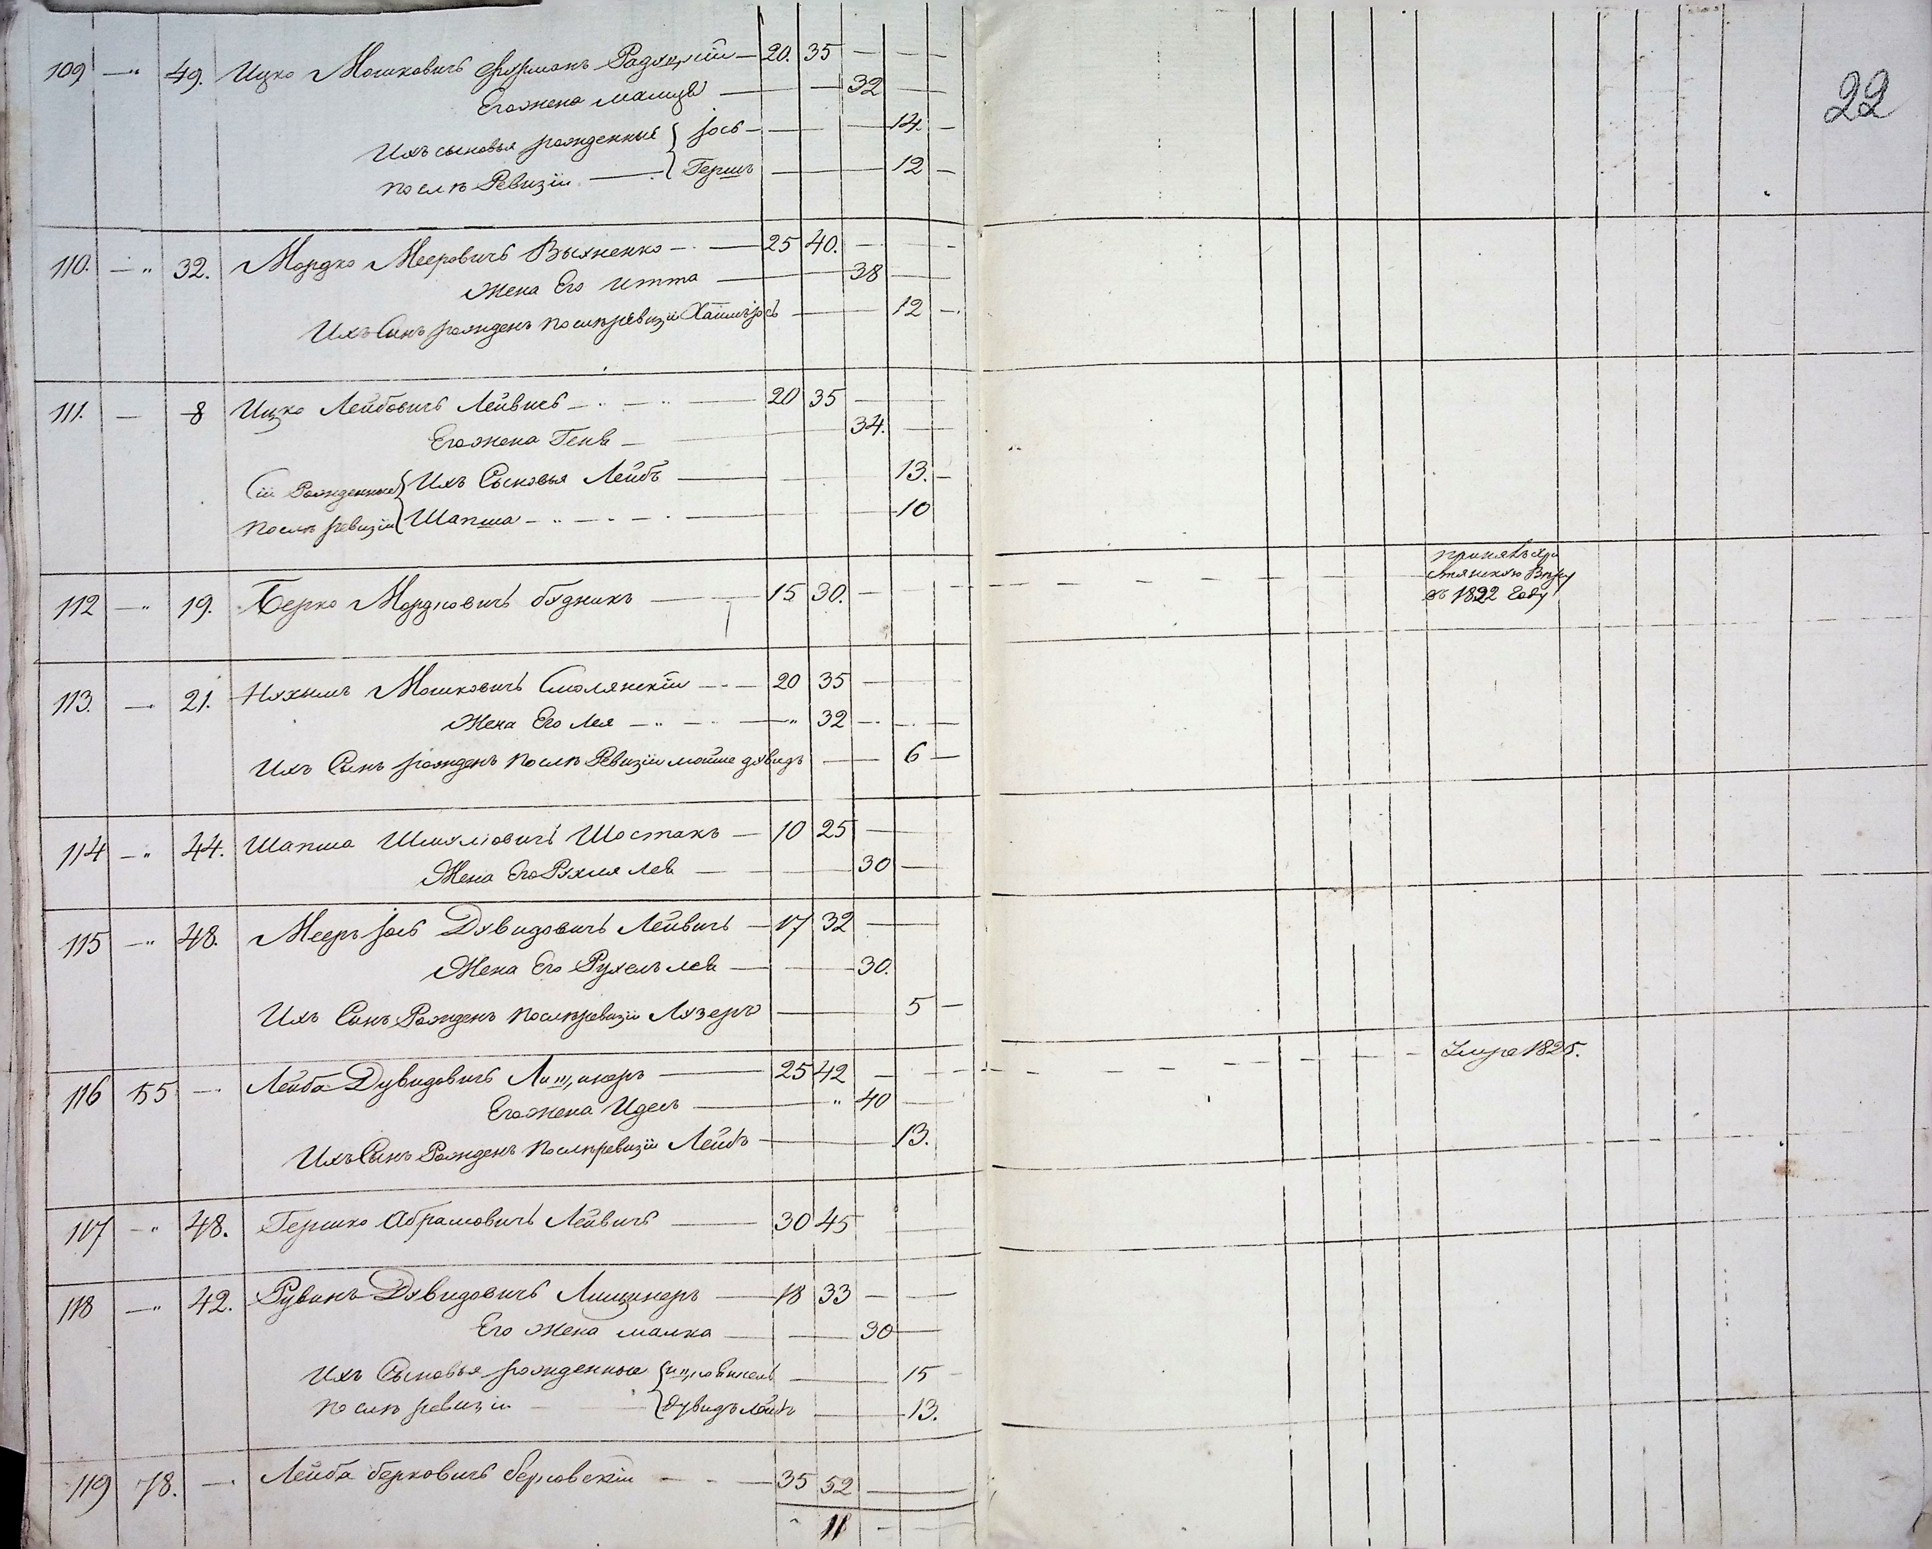 22
109 — " 49. Ицко Мошковичъ Фурманъ Радуцкій — 20. 35 — — —
Его жена Малця — — 32 —
Ихъ сыновья рожденные { Іось — — — 14. —
послѣ Ревизіи — { Гершъ — — 12 —
110. — " 32. Мордко Мееровичъ Выхненко — — 25 40. — — —
Жена Его Итта — — 38 —
Ихъ Сынъ рожденъ послѣ ревизіи Хаимъ Іось — — 12 —
111. — 8 Ицко Лейбовичъ Лейвичъ — " — " — 20 35 — —
Его жена Геня — — 34. —
Сіи Рожденные { Ихъ Сыновья Лейбъ — — 13. —
послѣ ревизіи { Шапша — " — — 10
112 — " 19. Берко Мордковичъ Будникъ — 15 30. — — — принялъ хри
стянскую Вѣру
въ 1822 Году
113. — 21. Нухимъ Мошковичъ Смолянскій — — 20 35 — —
Жена Его Лея — " — — " 32 — — —
Ихъ Сынъ рожденъ послѣ Ревизіи Мойше Дувидъ — — 6 —
114 — " 44. Шапша Шмулiовичъ Шостакъ — 10 25 — —
Жена Его Рухля Лея — — 30 —
115 — " 48. Мееръ Іось Дувидовичъ Лейвичъ — 17 32 — —
Жена Его Рухель Лея — — 30.
Ихъ Сынъ Рожденъ послѣ ревизіи Лузеръ — — 5 —
116 55 — Лейба Дувидовичъ Лищинеръ — 25 42 — — — Умре 1825.
Его жена Идесъ — " 40 —
Ихъ Сынъ Рожденъ послѣ ревизіи Лейбъ — — 13.
117 — " 48. Гершко Абрамовичъ Лейвичъ — 30 45
118 — " 42. Рувинъ Дувидовичъ Лищинеръ — 18 33 — —
Его Жена Малка — — 30 —
Ихъ Сыновья рожденные { — 15 —
послѣ ревизіи — { Дувидъ Лейбъ — 13.
119 78. — Лейба Берковичъ Берковскій — — — 35 52 —
11 — —